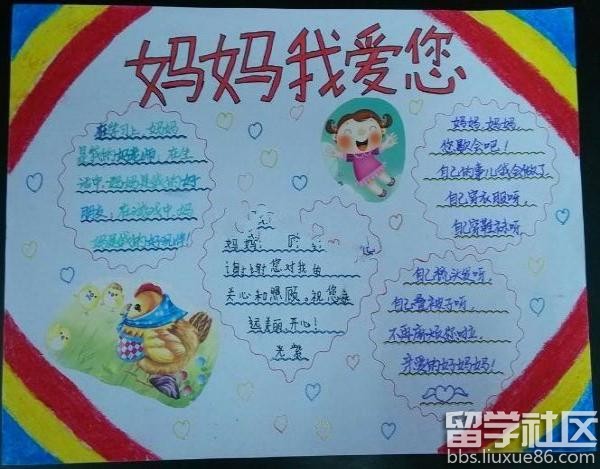 妈妈我爱您
在学习上,妈妈
是我的好老师,在生
活中,妈妈是我的好
朋友,在游戏中,妈
妈是我的好玩伴!
妈妈:
谢谢您对我的
关心和照顾。祝您永
远美丽、开心!
妈妈,妈妈
您歇会吧!
自己的事儿我会做了
自己穿衣服呀,
自己穿鞋袜呀,
自己梳头发呀,
自己叠被子呀,
不再麻烦你啦,
亲爱的好妈妈!
留学社区
bbs.liuxue86.com